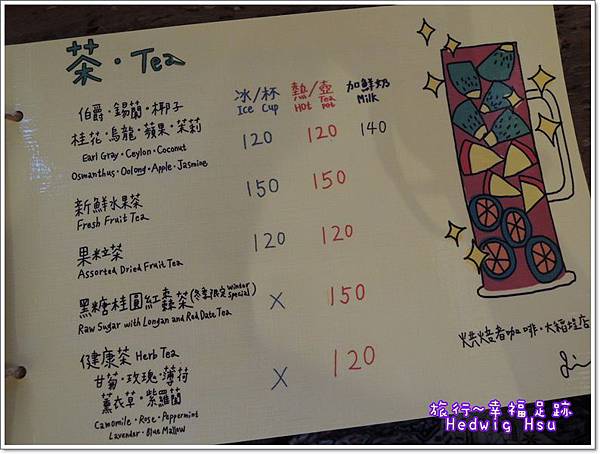 茶・Tea
冰/杯 熱/壺 加鮮奶
Ice Cup Hot Tea pot Milk
伯爵・錫蘭・椰子
桂花・烏龍・蘋果・茉莉 120 120 140
Earl Gray・Ceylon・Coconut
Osmanthus・Oolong・Apple・Jasmine
新鮮水果茶 150 150
Fresh Fruit Tea
果粒茶 120 120
Assorted Dried Fruit Tea
黑糖桂圓紅棗茶(冬季限定 Winter Special) X 150
Raw Sugar with Longan and Red Date Tea
健康茶 Herb Tea X 120
甘菊・玫瑰・薄荷
薰衣草・紫羅蘭
Camomile・Rose・Peppermint
Lavender・Blue Mallow
烘焙者咖啡・大稻埕店
旅行~幸福足跡
Hedwig Hsu